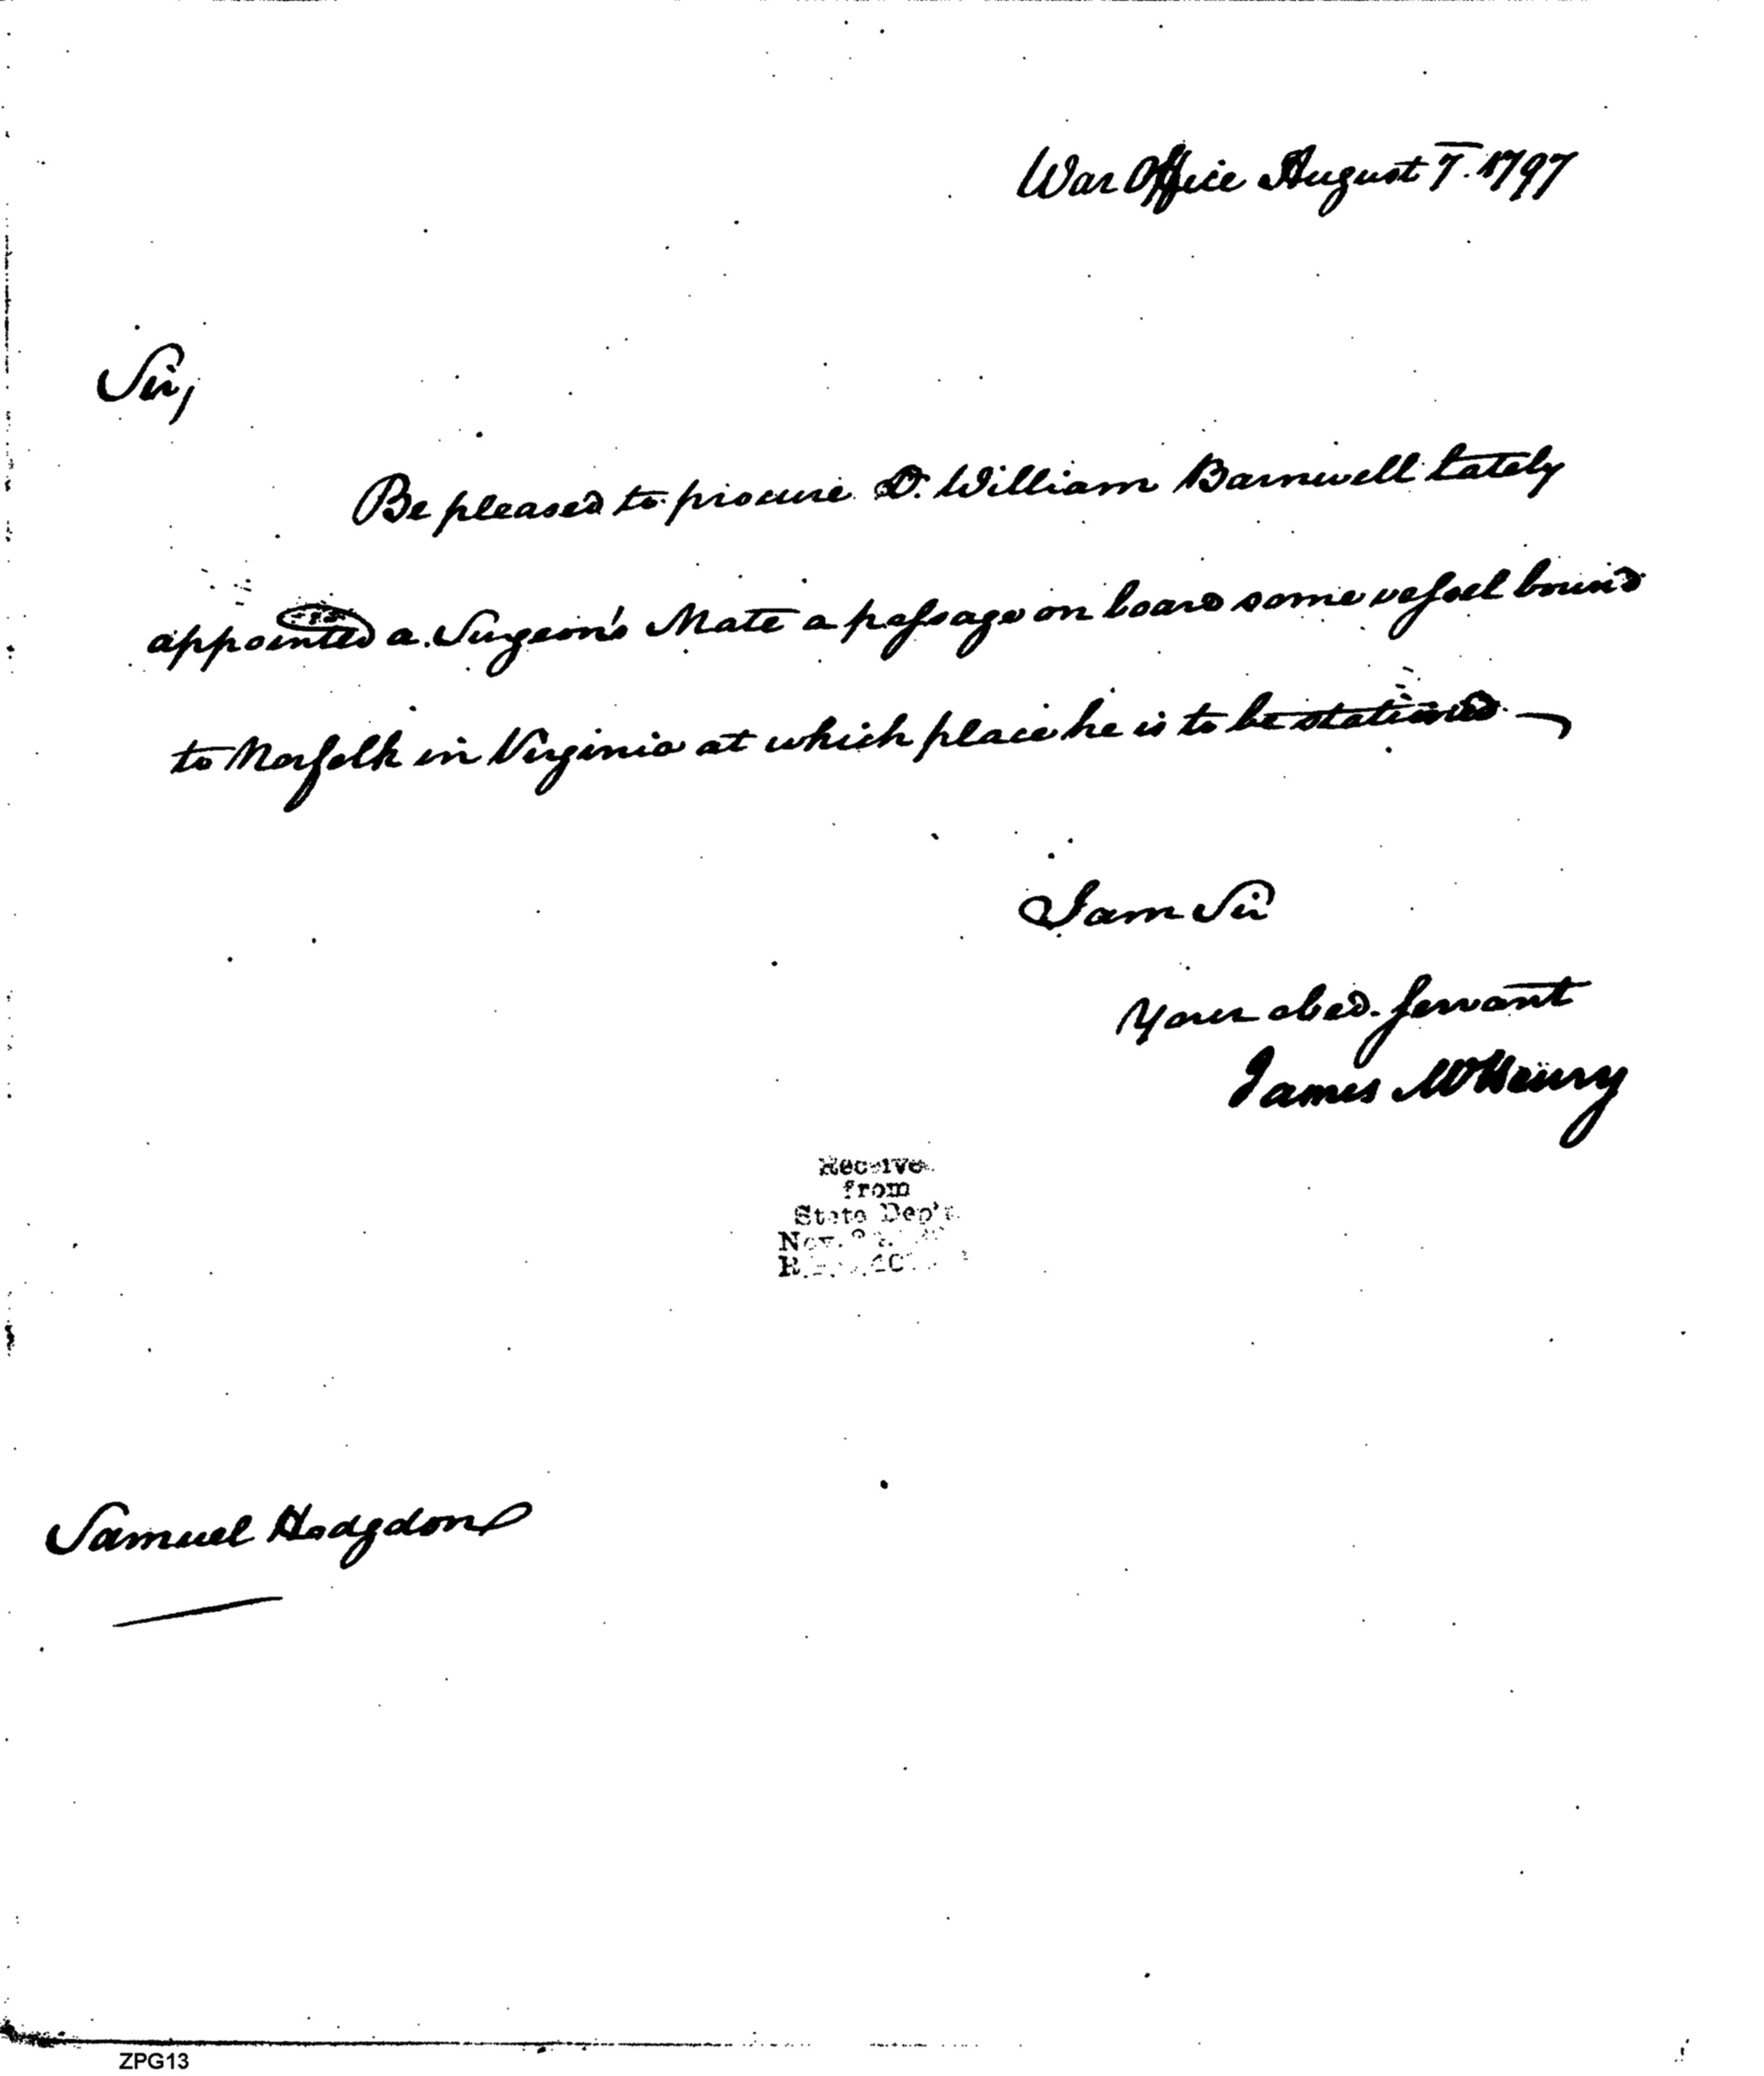 War Office August 7. 1797
Sir,
Be pleased to procure D. William Barnwell lately
appointed a Surgeon's Mate a passage on board some vessel bound
to Norfolk in Virginia at which place he is to be stationed. —
I am Sir
Your obed. servant
James McHenry
Received
from
State Dep't.
Nov.
Samuel Hodgdon
ZPG13